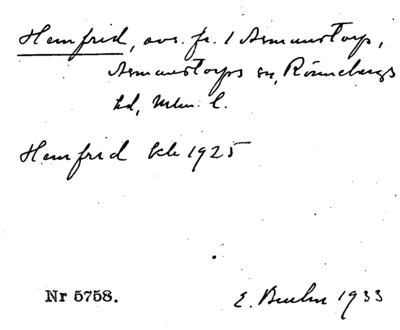 Hemfrid, avs. fr. 1 Asmundtorp,
Asmundtorps sn, Rönnebergs
hd, Mlm. l.
Hemfrid kk 1925
Nr 5758. E. Bruhn 1933